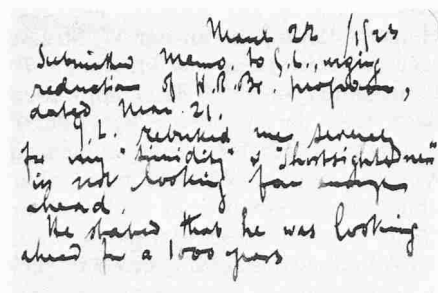 March 22 /1923
Submitted Memo. to urging
reduction of H.R.Bs. proposals,
dated Mar. 21.
rebuked me severely
for my "timidity" & "Shortsightedness"
in not looking far enough
ahead.
He stated that he was looking
ahead for a 1000 years